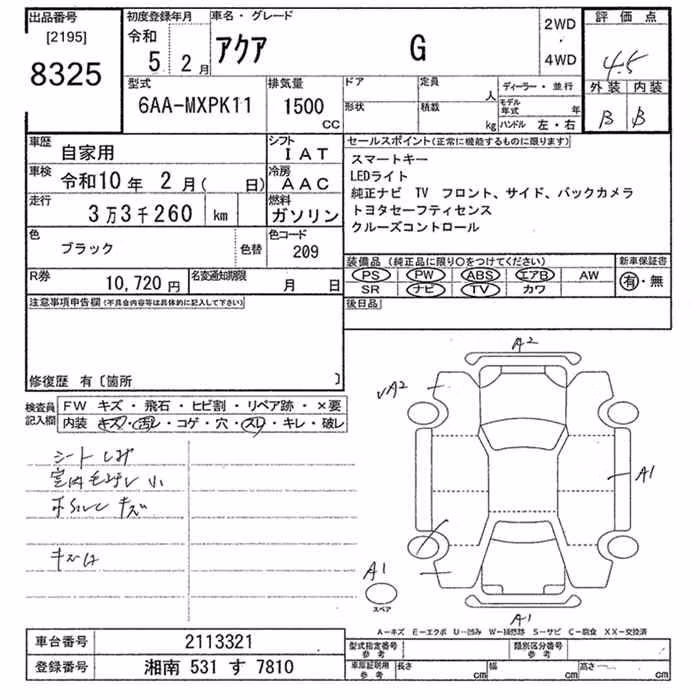 出品番号 初度登録年月 車名・グレード 評価点
[2195]
8325
令和
5 2月 アクア G 2WD・4WD 4.5
外装 内装
B B
型式 排気量 ドア 定員 人 ディーラー・並行
6AA-MXPK11 1500 CC 形状 積載 kg モデル年式 年
ハンドル 左・右
車歴 自家用 シフト IAT
セールスポイント(正常に機能するものに限ります)
スマートキー
LEDライト
純正ナビ TV フロント、サイド、バックカメラ
トヨタセーフティセンス
クルーズコントロール
車検 令和10年 2月( 日) 冷房 AAC
走行 3万3千260 km 燃料 ガソリン
色 ブラック 色替 色コード 209
装備品(純正品に限り○をつけてください) 新車保証書
PS PW ABS エアB AW 有・無
SR ナビ TV カワ
R券 10,720円 名変通知期限 月 日
後日品
注意事項申告欄(不具合内容等は具体的に記入して下さい)
修復歴 有〔箇所 〕
検査員記入欄
FW キズ・飛石・ヒビ割・リペア跡・×要
内装 キズ・汚レ・コゲ・穴・スレ・キレ・破レ
シートしみ
キズ
A2
A2
A1
A1
スペア
A1
A-キズ E-エクボ U-凹み W-補修跡 S-サビ C-腐食 XX-交換済
車台番号 2113321
登録番号 湘南 531 す 7810
型式指定番号 参考 類別区分番号 参考
車庫証明用 参考 長さ cm 幅 cm 高さ cm